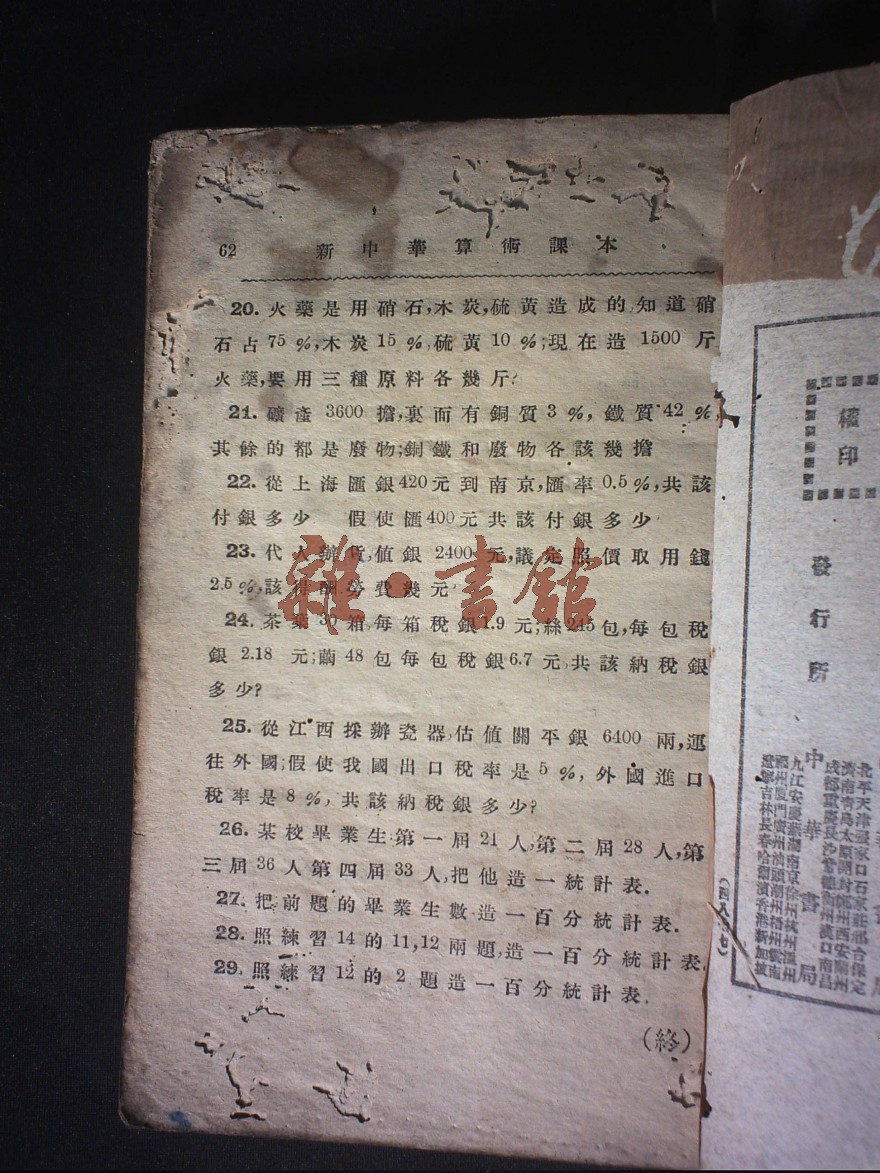 62 新中華算術課本
20. 火藥是用硝石,木炭,硫黃造成的,知道硝
石占75%,木炭15%,硫黃10%;現在造1500斤
火藥,要用三種原料各幾斤?
21. 礦產3600擔,裏面有銅質3%,鐵質42%,
其餘的都是廢物;銅鐵和廢物各該幾擔
22. 從上海匯銀420元到南京,匯率0.5%,共該
付銀多少 假使匯400元共該付銀多少
23. 代人辦貨,值銀2400元,議定照價取用錢
2.5%,該得酬勞費幾元
24. 茶葉30箱,每箱稅銀1.9元;絲245包,每包稅
銀2.18元;繭48包每包稅銀6.7元,共該納稅銀
多少?
25. 從江西採辦瓷器,估值關平銀6400兩,運
往外國;假使我國出口稅率是5%,外國進口
稅率是8%,共該納稅銀多少?
26. 某校畢業生:第一屆21人,第二屆28人,第
三屆36人第四屆33人,把他造一統計表.
27. 把前題的畢業生數造一百分統計表.
28. 照練習14的11,12兩題,造一百分統計表.
29. 照練習12的2題造一百分統計表.
(終)
雜·書館
權印
發行所
中華書局